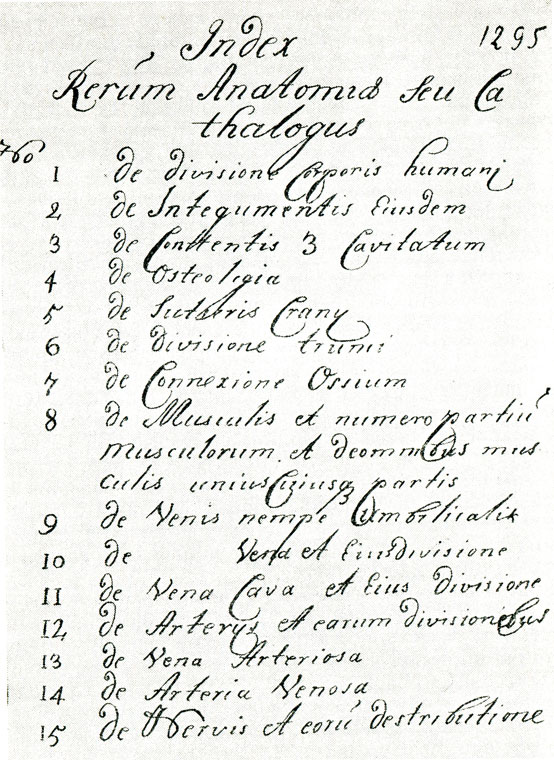 1295
Index
Rerúm Anatomiæ seu Ca
thalogus
760
1 de divisione Corporis humani
2 de Integumentis Eiusdem
3 de Contentis 3 Cavitatum
4 de Osteoligia
5 de Suturis Crany
6 de divisione trunci
7 de Connexione Ossium
8 de Musculis et numero partiú
musculorum et deomnibus mus-
culis unius Cuiusq3 partis
9 de Venis nempe Umbilicalis
10 de Vena et Eiusdivisione
11 de Vena Cava et Eius divisione
12 de Arterys et earum divisionibus
13 de Vena Arteriosa
14 de Arteria Venosa
15 de Nervis et eorú destributione